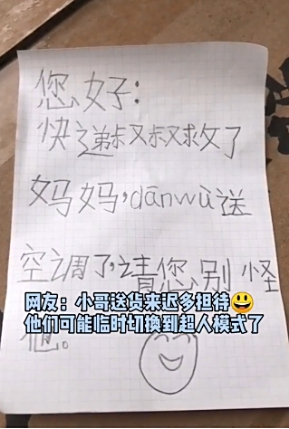 您好:
快递叔叔救了
妈妈,dānwù送
空调了,请您别怪
他。
网友：小哥送货来迟多担待😃
他们可能临时切换到超人模式了